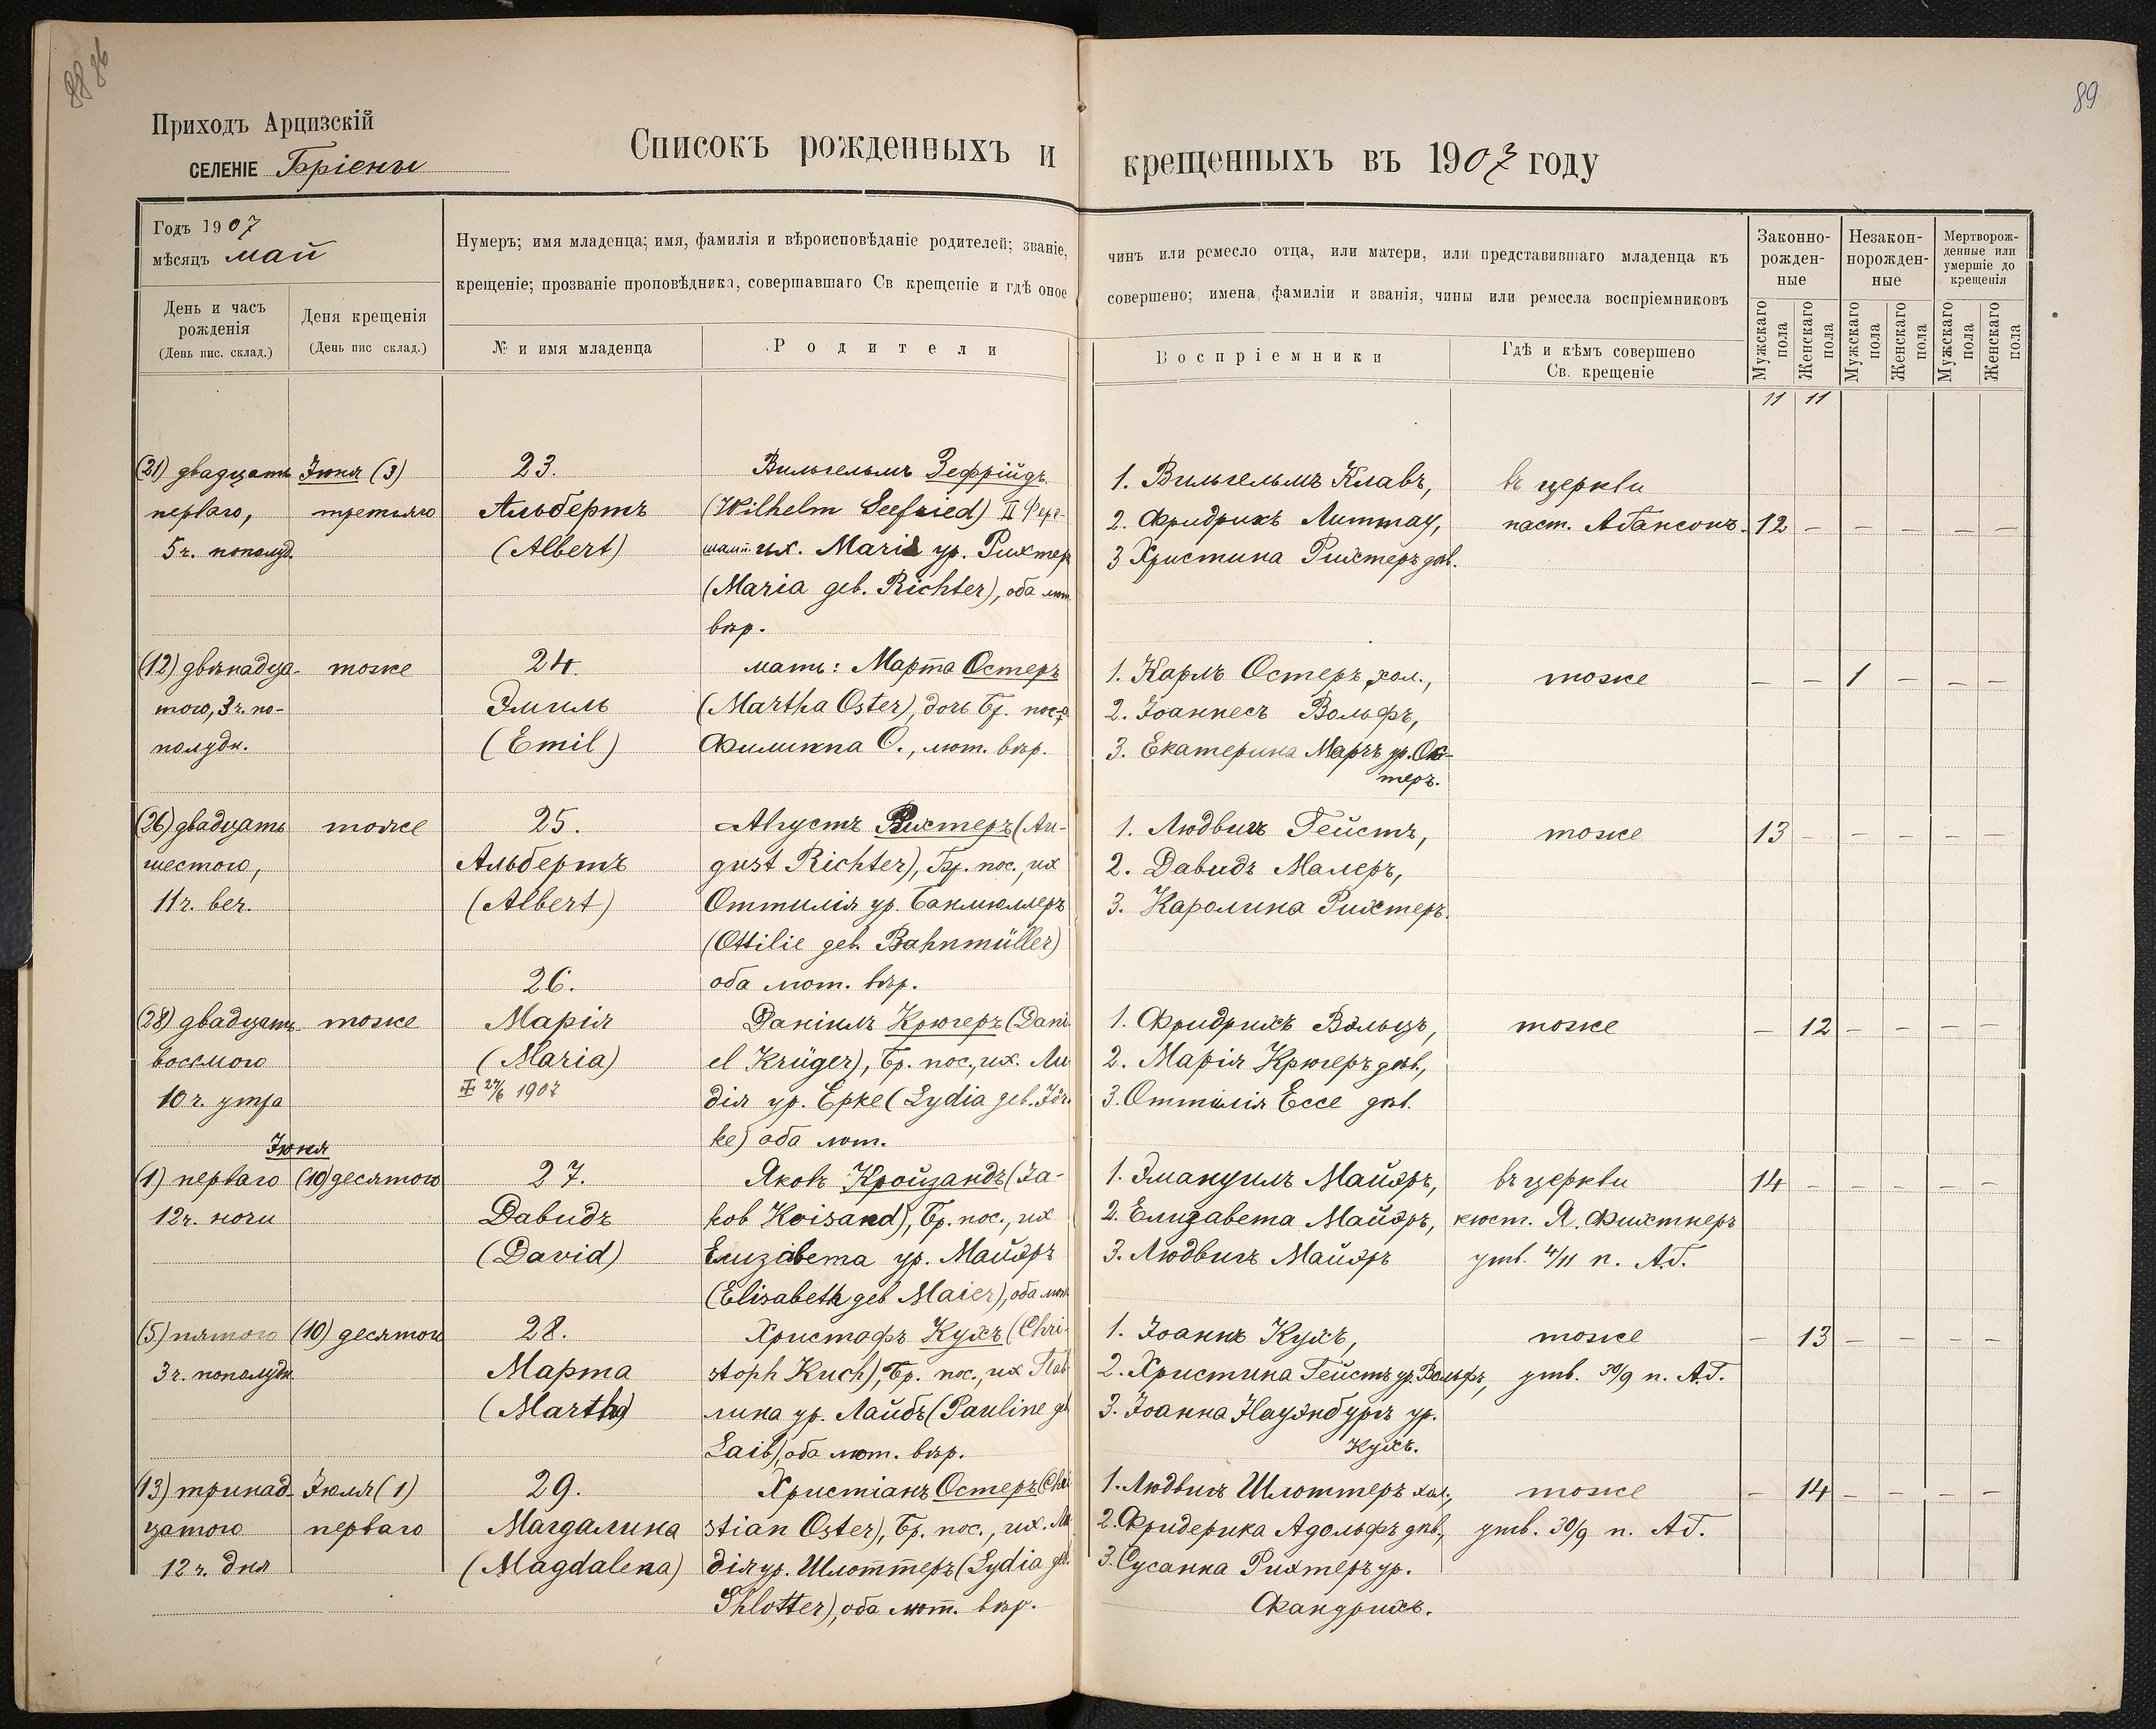 89
Приходъ Арцизскій
СЕЛЕНІЕ Бріены
Списокъ рожденныхъ и крещенныхъ въ 1907 году
Годъ 1907
мѣсяцъ май
День и часъ рожденія
(День пис. склад.)
Деня крещенія
(День пис склад.)
Нумеръ; имя младенца; имя, фамилія и вѣроисповѣданіе родителей; званіе, чинъ или ремесло отца, или матери, или представившаго младенца къ
крещеніе; прозваніе проповѣдника, совершавшаго Св крещеніе и гдѣ оное совершено; имена, фамиліи и званія, чины или ремесла воспріемниковъ
№ и имя младенца
Родители
Воспріемники
Гдѣ и кѣмъ совершено
Св. крещеніе
Законно-
рожден-
ные
Незакон-
норожден-
ные
Мертворож-
денные или
умершіе до
крещенія
Мужскаго пола
Женскаго пола
Мужскаго пола
Женскаго пола
Мужскаго пола
Женскаго пола
11 11
(21) двадцать
перваго,
5 ч. пополуд.
Іюня (3)
третьяго
23.
Альбертъ
(Albert)
Вильгельмъ Зефрійдъ
(Wilhelm Seefried) II Фере-
шамп. их. Maria ур. Рихтер
(Maria geb. Richter), оба лют.
вѣр.
1. Вильгельмъ Клавъ,
2. Фридрихъ Литтау,
3 Христина Рихтеръ дѣв.
въ церкви
паст. А Гансонъ
12 — — — — —
(12) двѣнадца-
того, 3 ч. по-
полудн.
тоже
24.
Эмиль
(Emil)
мать: Марта Остеръ
(Martha Oster), дочь Бр. пос-
Филиппа О., лют. вѣр.
1. Карлъ Остеръ, хол.,
2. Іоаннесъ Вольфъ,
3. Екатерина Марчъ ур. Ос-
теръ.
тоже
— — 1 — — —
(26) двадцать
шестого,
11 ч. веч.
тоже
25.
Альбертъ
(Albert)
Августъ Рихтеръ (Au-
gust Richter), Бр. пос., их
Оттилія ур. Банмюллеръ
(Ottilie geb. Bahnmüller)
оба лют. вѣр.
1. Людвигъ Гейстъ,
2. Давидъ Малеръ,
3. Каролина Рихтеръ.
тоже
13 — — — — —
(28) двадцать
восьмого
10 ч. утра
тоже
26.
Марія
(Maria)
1907
Даніилъ Крюгеръ (Dani-
el Krüger), Бр. пос., их. Ли
дія ур. Ерке (Lydia geb. Jör-
ke) оба лют.
1. Фридрихъ Вольцъ,
2. Марія Крюгеръ дѣв.,
3. Оттилія Ессе дѣв.
тоже
— 12 — — — —
Іюня
(1) перваго
12 ч. ночи
(10) десятого
27.
Давидъ
(David)
Яковъ Кройзандъ (Ja-
kob Koisand), Бр. пос., их
Елизавета ур. Майэръ
(Elisabeth geb Maier), оба лют
1. Эмануилъ Майэръ,
2. Елизавета Майэръ,
3. Людвигъ Майэръ
въ церкви
кюст. Я. Фихтнеръ
утв. 4/11 п. А.Г.
14 — — — — —
(5) пятого
3 ч. пополудн.
(10) десятого
28.
Марта
(Martha)
Христофъ Кухъ (Chri-
stoph Kuch), Бр. пос., их Пав
лина ур. Лайбъ (Pauline geb
Laib), оба лют. вѣр.
1. Іоаннъ Кухъ,
2. Христина Гейстъ ур. Вольфъ,
3. Іоанна Науэнбургъ ур.
Кухъ.
тоже
утв. 30/9 п. А.Г.
— 13 — — — —
(13) тринад-
цатого
12 ч. дня
Іюля (1)
перваго
29.
Магдалина
(Magdalena)
Христіанъ Остеръ (Chri
stian Oster), Бр. пос., их. Ли
дія ур. Шлоттеръ (Lydia geb.
Shlotter), оба лют. вѣр.
1. Людвигъ Шлоттеръ хол.,
2. Фридерика Адольфъ дѣв.,
3. Сусанна Рихтеръ ур.
Фандрихъ.
тоже
утв. 30/9 п. А Г.
— 14 — — — —